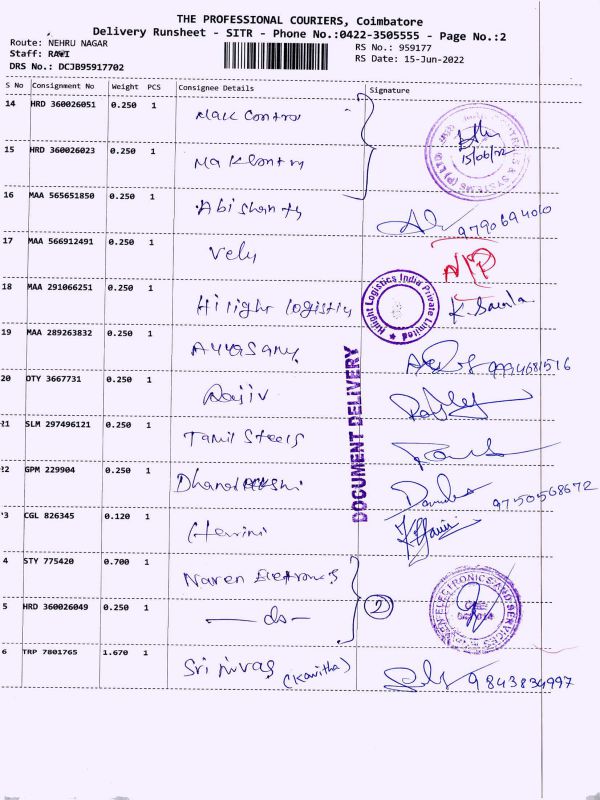 THE PROFESSIONAL COURIERS, Coimbatore
Delivery Runsheet - SITR - Phone No.:0422-3505555 - Page No.:2
Route: NEHRU NAGAR
RS No.: 959177
Staff: RAVI
RS Date: 15-Jun-2022
DRS No.: DCJB95917702
S No Consignment No Weight PCS Consignee Details Signature
14 HRD 360026051 0.250 1 Mak Control
15/06/22
15 HRD 360026023 0.250 1 Mak Contry
16 MAA 565651850 0.250 1 Abishanth
17 MAA 566912491 0.250 1 Velu
18 MAA 291066251 0.250 1 Hilight Logistly K. Sarala
Hilight Logistics India Private Limited
19 MAA 289263832 0.250 1 Ayyasamy
20 OTY 3667731 0.250 1 Rajiv
21 SLM 297496121 0.250 1 Tamil Steels
DOCUMENT DELIVERY
22 GPM 229904 0.250 1 9750568672
'3 CGL 826345 0.120 1 Harini
4 STY 775420 0.700 1 Naren Eletronics
5 HRD 360026049 0.250 1 —do— 2
ELECTRONICS AND SERVICES
6 TRP 7801765 1.670 1 Srinivas (Kavitha) 9843834997